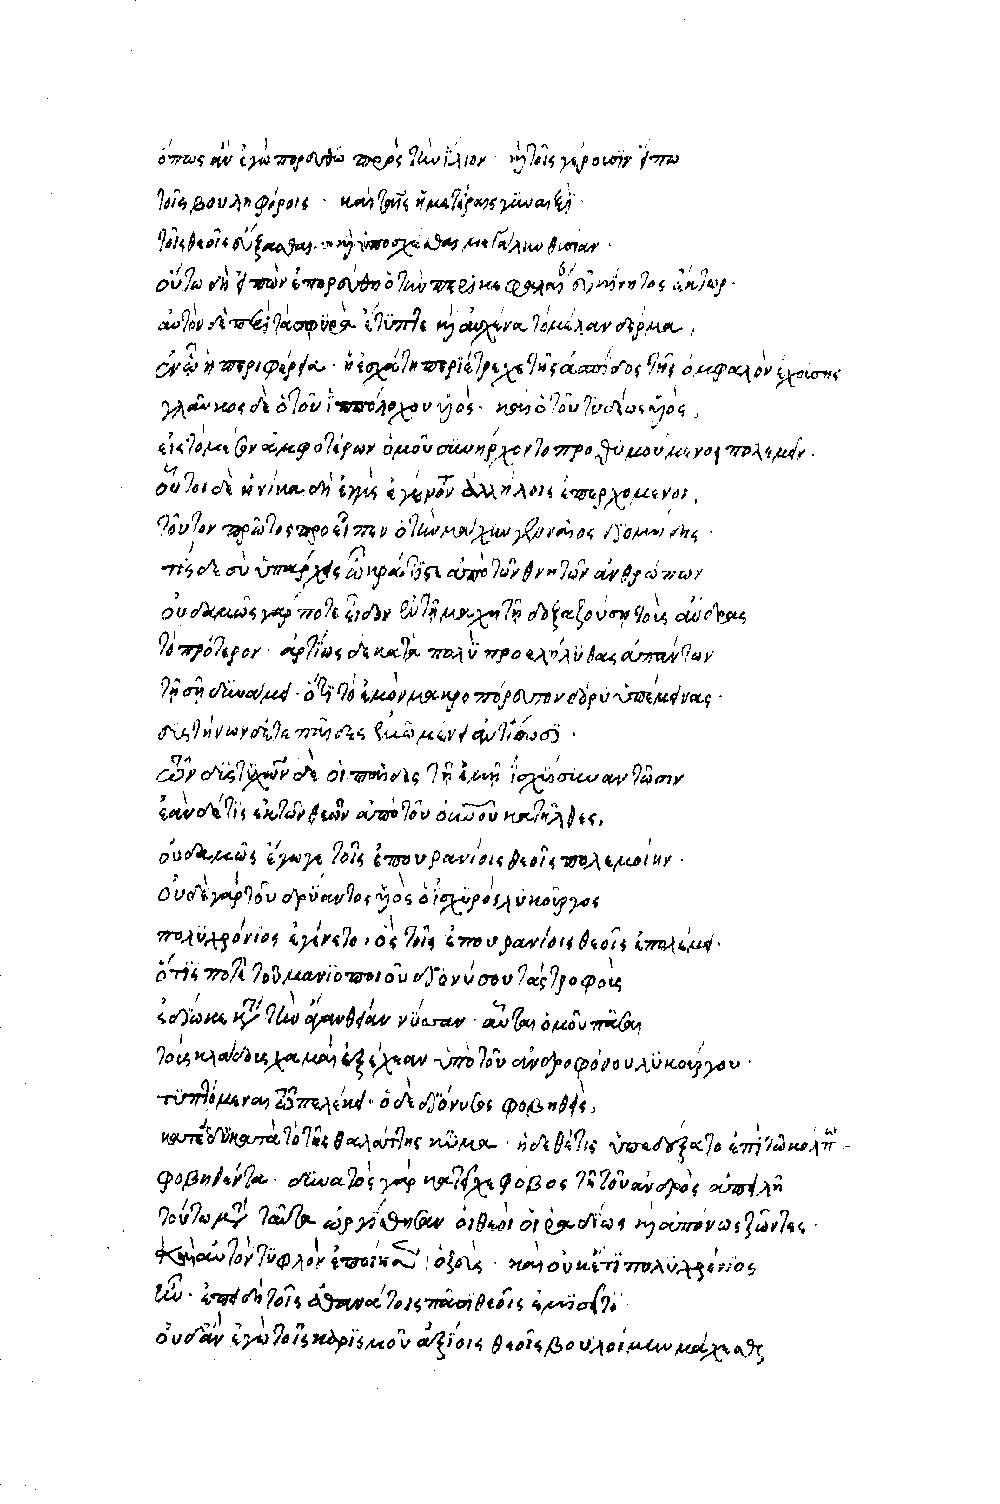 ὅπως ἂν ἐγὼ πορευθῶ πρὸς τὴν ἴλιον · καὶ τοῖς γέρουσιν εἴπω
τοῖς βουληφόροις · καὶ ταῖς ἡμετέραις γυναιξὶ ·
τοῖς θεοῖς εὔξασθαι · καὶ ὑποσχέσθαι μεγάλην θυσίαν ·
οὕτω δὴ εἰπὼν ἐπορεύθη ὁ τὴν περικεφαλαίαν εὐκίνητος ἕκτωρ ·
αὐτὸν δὲ περὶ τὰ σφυρὰ ἔτυπτε καὶ αὐχένα τὸ μέλαν δέρμα ,
ἐν ᾧ ἡ περιφέρεια · ἡ ἐσχάτη περιέτρεχε τῆς ἀσπίδος τῆς ὀμφαλὸν ἐχούσης
γλαῦκος δὲ ὁ τοῦ ἱππολόχου υἱὸς · καὶ ὁ τοῦ τυδέως υἱὸς ,
εἰς τὸ μέσον ἀμφοτέρων ὁμοῦ συνήρχοντο προθυμούμενοι πολεμεῖν ·
οὗτοι δὲ ἡνίκα δὴ ἐγγὺς ἐγένοντο ἀλλήλοις ἐπερχόμενοι ,
τοῦτον πρῶτος προεῖπεν ὁ τὴν μάχην γενναῖος διομήδης ·
τίς δὲ σὺ ὑπάρχεις ὦ κράτιστε ἀπὸ τῶν θνητῶν ἀνθρώπων
οὐδαμῶς γάρ ποτε εἶδον ἐν τῇ μάχῃ τῇ δοξαζούσῃ τοὺς ἄνδρας
τὸ πρότερον · ἀρτίως δὲ κατὰ πολὺ προελήλυθας ἁπάντων
τῇ σῇ δυνάμει · ὅτι τὸ ἐμὸν μακροπόρευτον δόρυ ὑπέμεινας ·
δυστήνων δέ τε παῖδες ἐμῷ μένει ἀντιόωσι ·
δυστυχῶν δὲ οἱ παῖδες τῇ ἐμῇ ἰσχύι συναντῶσιν
ἐὰν δέ τις ἐκ τῶν θεῶν ἀπὸ τοῦ οὐρανοῦ κατῆλθες ,
οὐδαμῶς ἔγωγε τοῖς ἐπουρανίοις θεοῖς πολεμοίην ·
οὐδὲ γὰρ τοῦ δρύαντος υἱὸς ὁ ἰσχυρὸς λυκοῦργος
πολυχρόνιος ἐγένετο , ὃς τοῖς ἐπουρανίοις θεοῖς ἐπολέμει ·
ὅστις ποτὲ τοῦ μανιοποιοῦ διονύσου τὰς τροφοὺς
ἐδίωκε κατὰ τὴν ἀγανθέαν νύσσαν · αὗται ὁμοῦ πᾶσαι
τοὺς κλάδους χαμαὶ ἐξέχεαν ὑπὸ τοῦ ἀνδροφόνου λυκούργου ·
τυπτόμεναι τῷ πελέκει · ὁ δὲ διόνυσος φοβηθεὶς ,
κατέδυ κατὰ τὸ τῆς θαλάττης κῦμα · ἡ δὲ θέτις ὑπεδέξατο ἐπὶ τῷ κόλπῳ
φοβηθέντα · δυνατὸς γὰρ κατεῖχε φόβος τῇ τοῦ ἀνδρὸς ἀπειλῇ
τούτῳ μετὰ ταῦτα ὠργίσθησαν οἱ θεοὶ οἱ ῥᾳδίως καὶ ἀπόνως ζῶντες ·
καὶ αὐτὸν τυφλὸν ἐποίησεν · καὶ οὐκέτι πολυχρόνιος
ἦν · ἐπειδὴ τοῖς ἀθανάτοις πᾶσι θεοῖς ἐμισεῖτο
οὐδ' ἂν ἐγὼ τοῖς μακαρισμοῦ ἀξίοις θεοῖς βουλοίμην μάχεσθαι